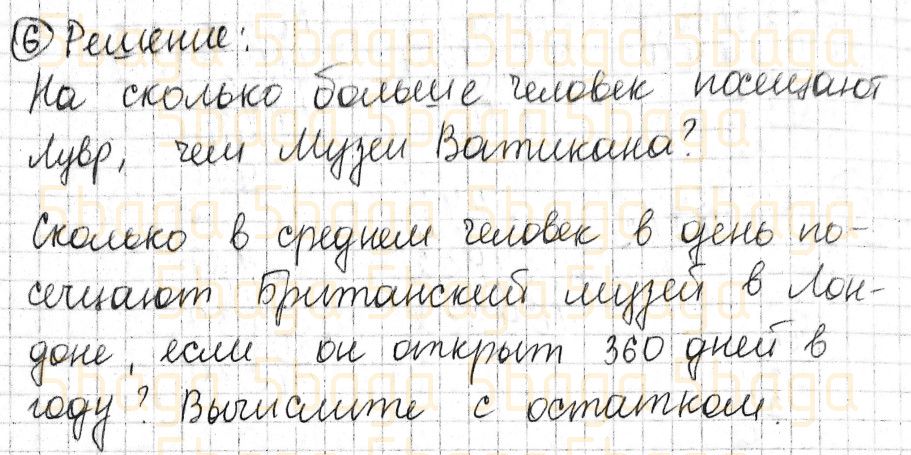 6 Решение:
На сколько больше человек посещают
Лувр, чем Музеи Ватикана?
Сколько в среднем человек в день по-
сещают Британский музей в Лон-
доне, если он открыт 360 дней в
году? Вычислите с остатком.